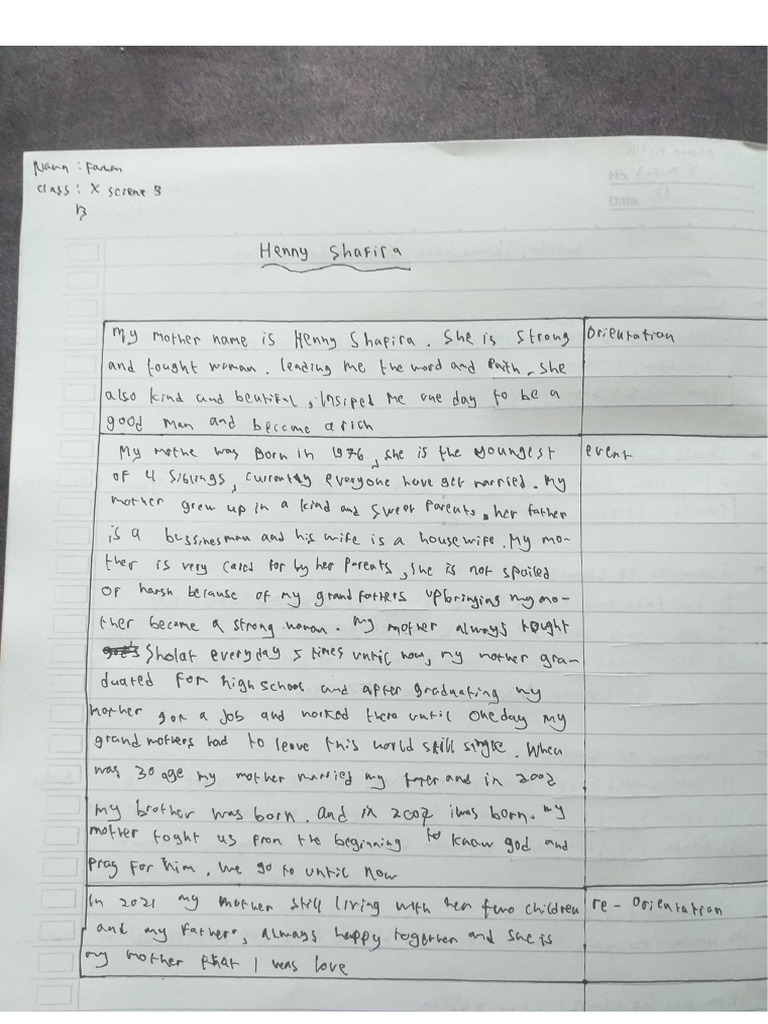 Name : Farhan
class : X science 3
13
Henny Shafira
My mother name is Henny Shafira. She is strong
Orientation
and tought woman. leading me the word and faith. She
also kind and beutiful, insiped me one day to be a
good man and become a rich
My mothe was Born in 1976, she is the youngest
event
of 4 siblings, currently everyone have get married. My
mother grew up in a kind and sweet Parents, her father
is a bussinesman and his wife is a housewife. My mo-
ther is very cared for by her Parents, she is not spoiled
or harsh because of my grandfathers upbringing my mo-
ther become a strong woman. My mother always tought
Sholat everyday 5 times until now, my mother gra-
duated from high school and after graduating my
mother got a job and worked there until one day my
grandmothers had to leave this world still single. When
was 30 age my mother married my father and in 2002
my brother was born. and in 2007 i was born. my
mother toght us from the beginning to know god and
pray for him, we go to until now
in 2021 my mother still living with her two children
re - Orientation
and my father, always happy together and she is
my mother that I was love